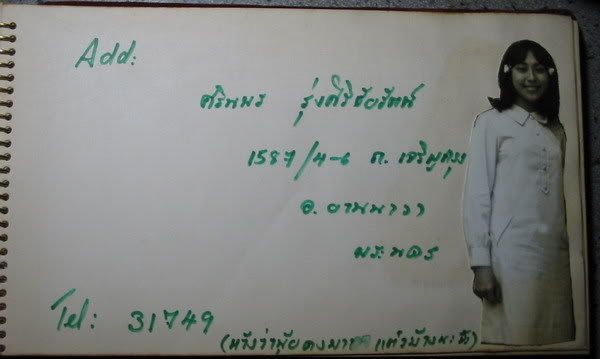 Add:
ศรินพร รุ่งศิริชัยรัตน์
1587/4-6 ถ. เจริญกรุง
อ. ยานนาวา
พระนคร
Tel: 31749
(หวังว่าปุ้ยคงมา แถวบ้านนะจ๊ะ)